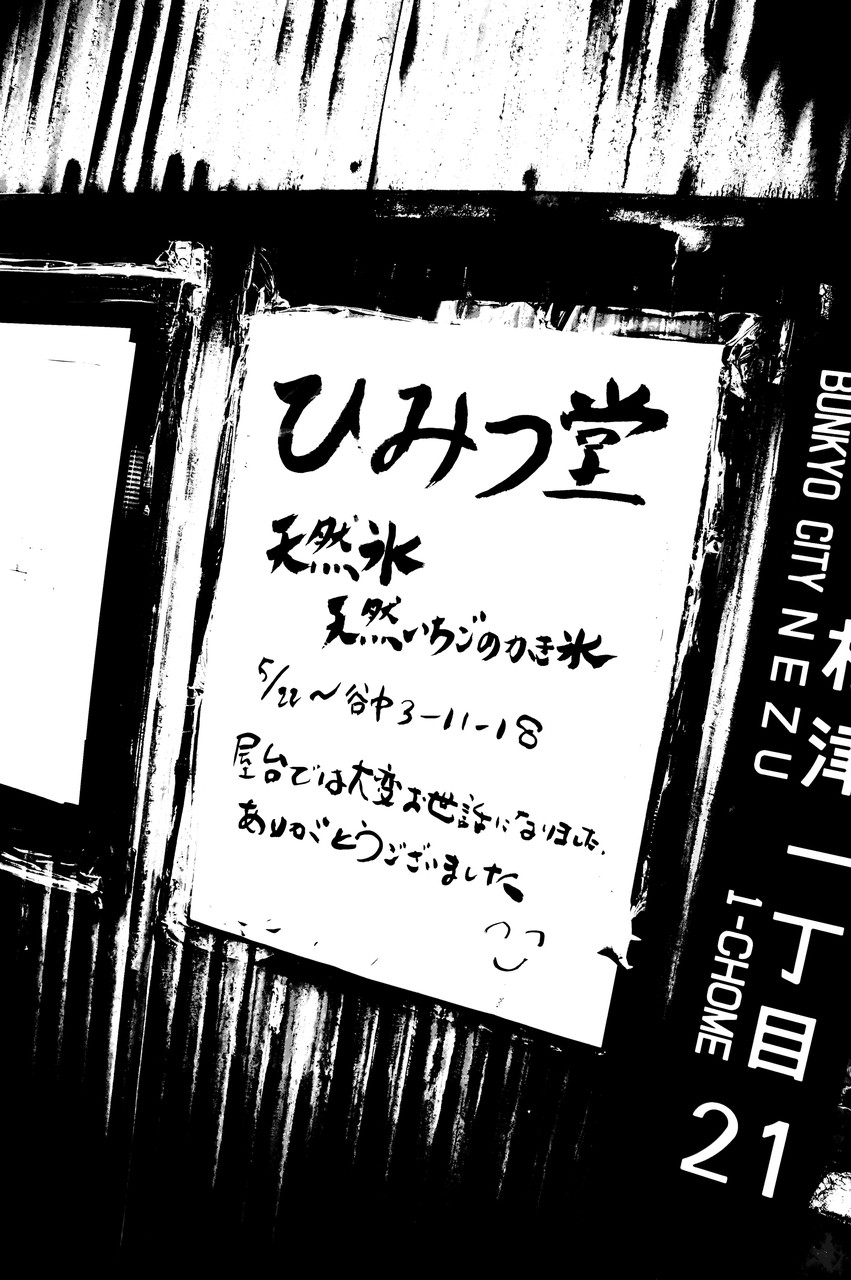 ひみつ堂
天然氷
天然いちごのかき氷
5/22〜谷中3-11-18
屋台では大変お世話になりました。
ありがとうございました。
BUNKYO CITY NEZU
根津一丁目
1-CHOME
21